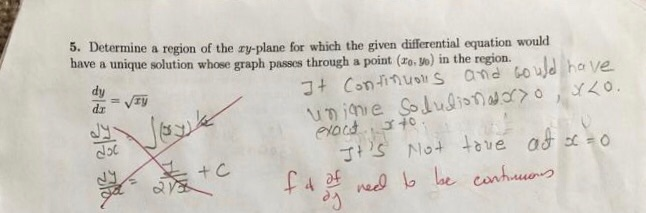 5. Determine a region of the xy-plane for which the given differential equation would
have a unique solution whose graph passes through a point (x₀, y₀) in the region.
dy/dx = √xy
It Continuous and would have
unique Soludion at x>0, x<0.
exact
It's Not tove at x=0
dy/dx ∫(xy)^½
dy/dx = 1/2√x + C
f & ∂f/∂y need to be continuous